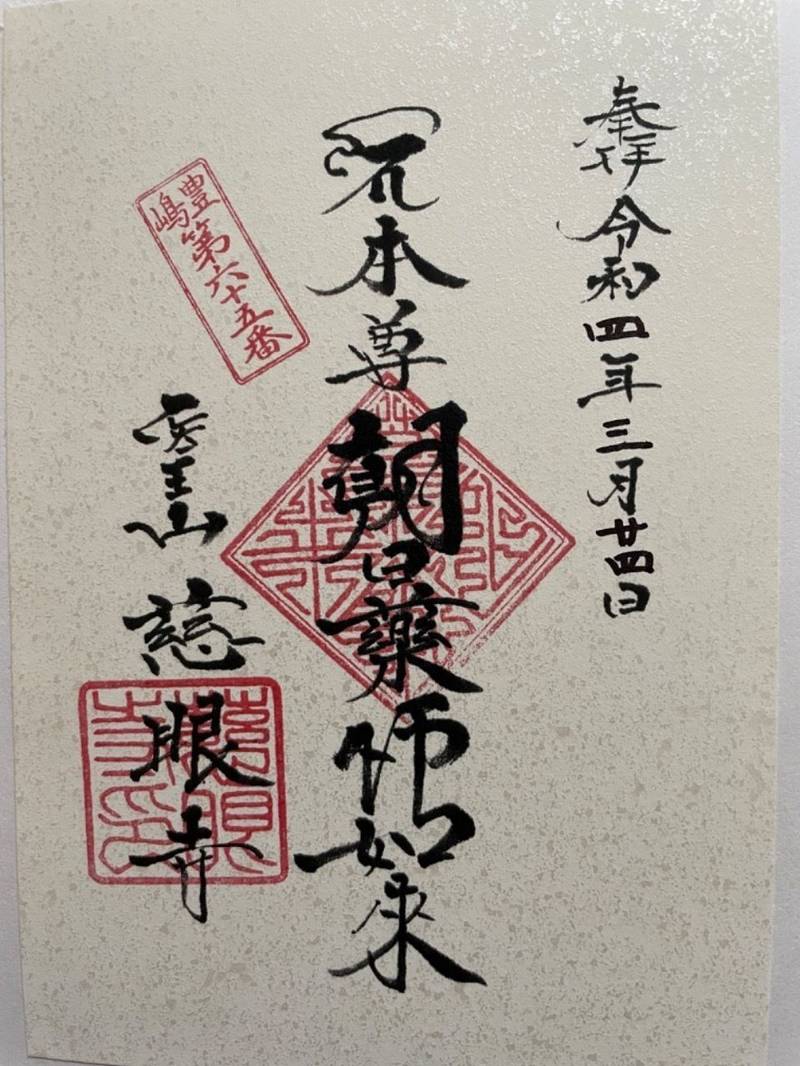 奉拝 令和四年三月廿四日
本尊 朝日藥師如来
豊嶋第六十五番
霊山 慈眼寺
慈眼寺印